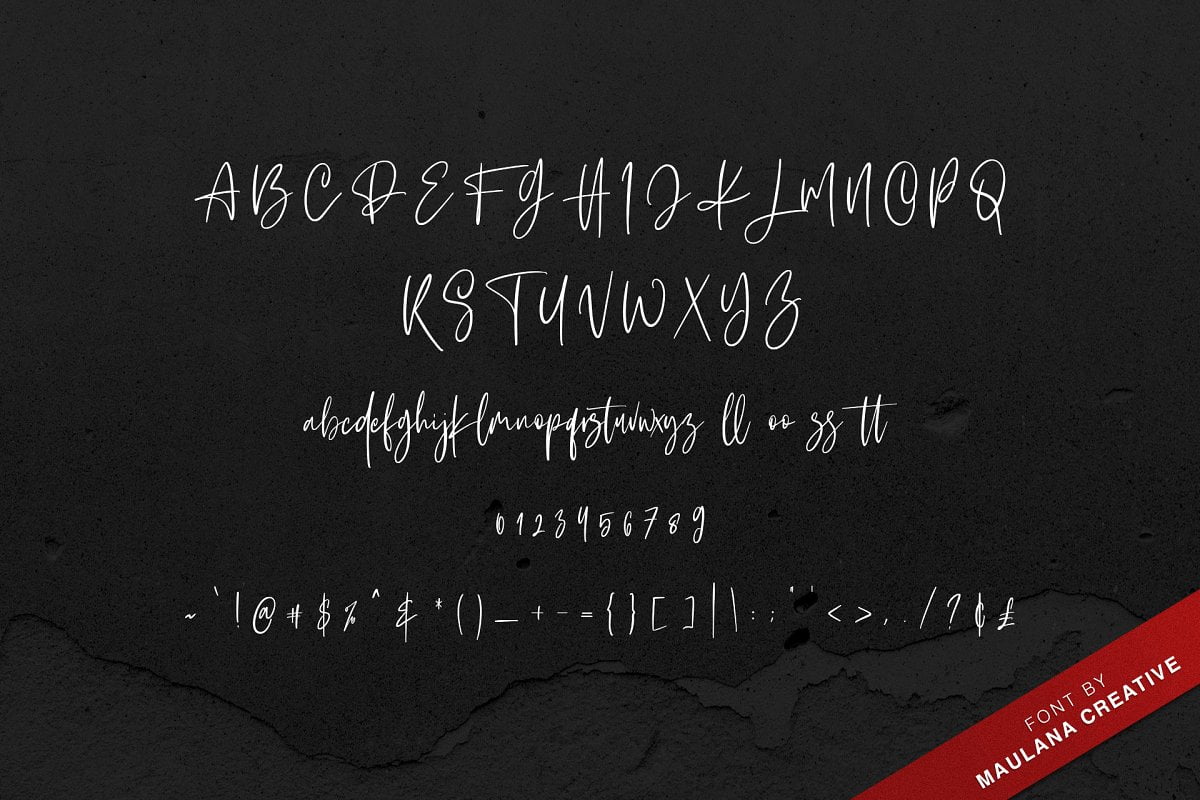 ABCDEFGHIJKLMNOPQ
RSTUVWXYZ
abcdefghijklmnopqrstuvwxyz ll oo ss tt
0123456789
~ ` ! @ # $ % ^ & * ( ) _ + - = { } [ ] | \ : ; " ' < > , . / ? ¢ £
FONT BY
MAULANA CREATIVE